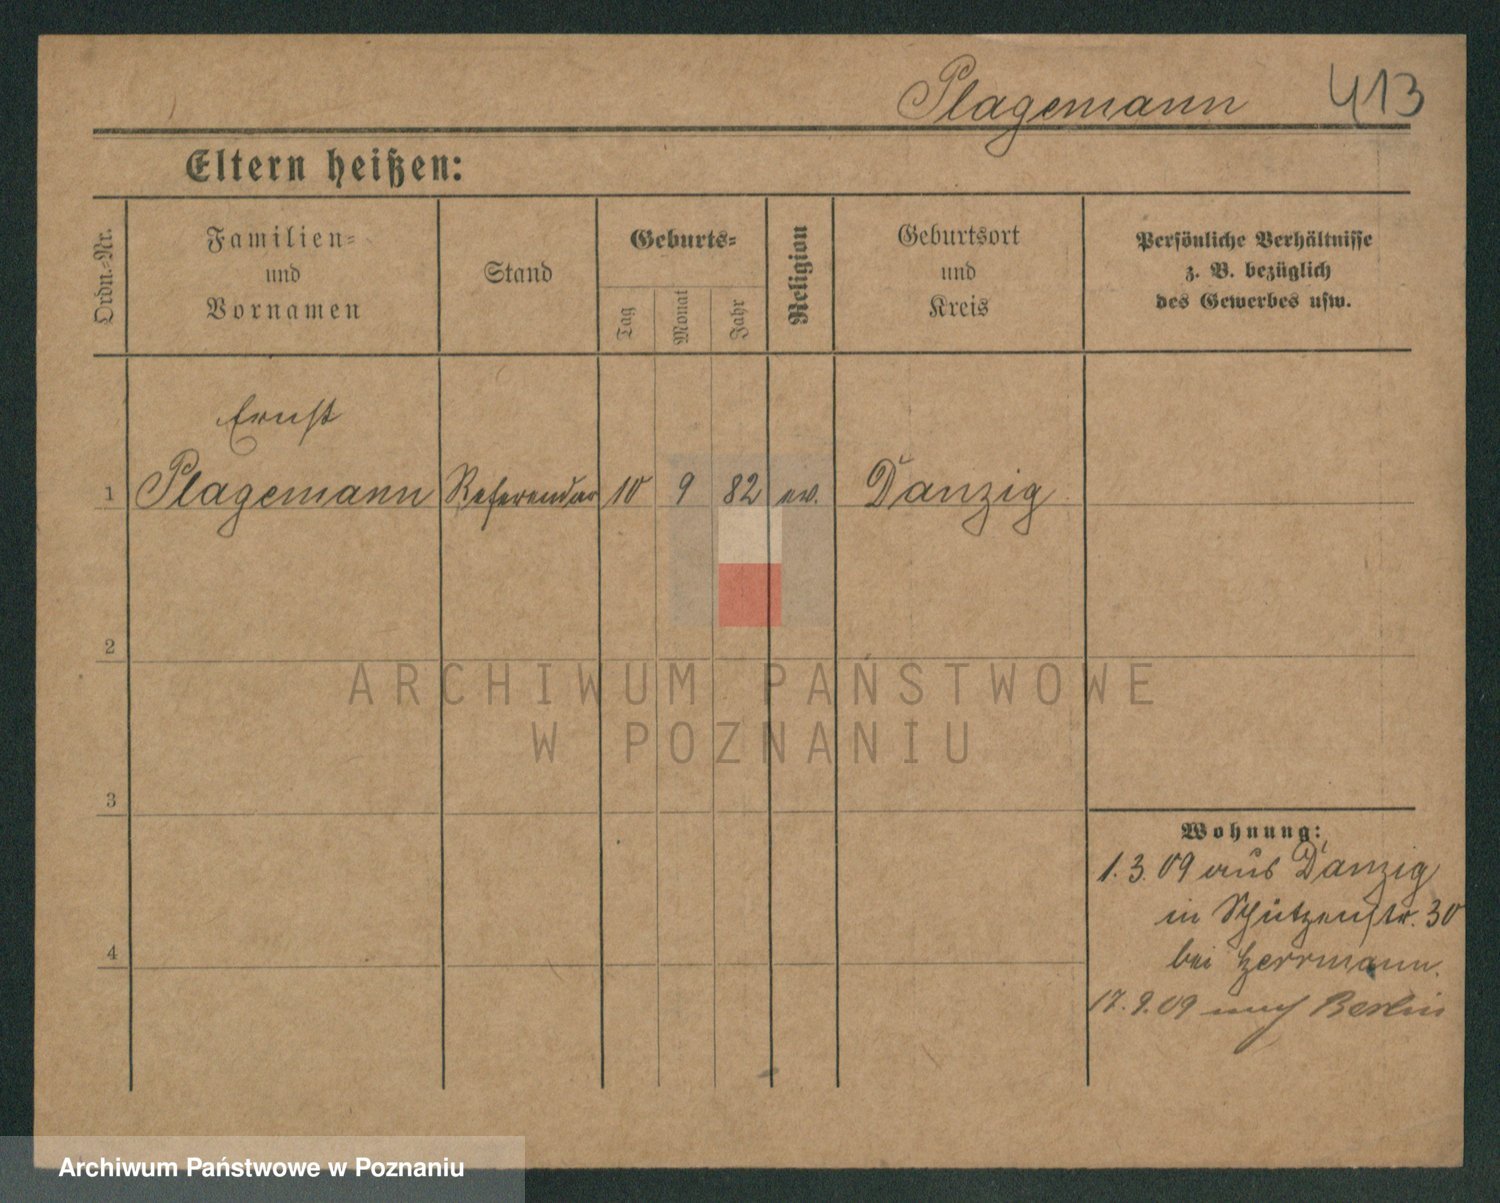 Plagemann 413
Eltern heißen:
Ordn.-Nr.
Familien-
und
Vornamen
Stand
Geburts-
Tag
Monat
Jahr
Religion
Geburtsort
und
Kreis
Persönliche Verhältnisse
z. B. bezüglich
des Gewerbes usw.
Ernst
1 Plagemann Referendar 10 9 82 ev. Danzig
2
3
4
Wohnung:
1.3.09 aus Danzig
in Schützenstr. 30
bei Herrmann.
17.9.09 nach Berlin
ARCHIWUM PAŃSTWOWE
W POZNANIU
Archiwum Państwowe w Poznaniu